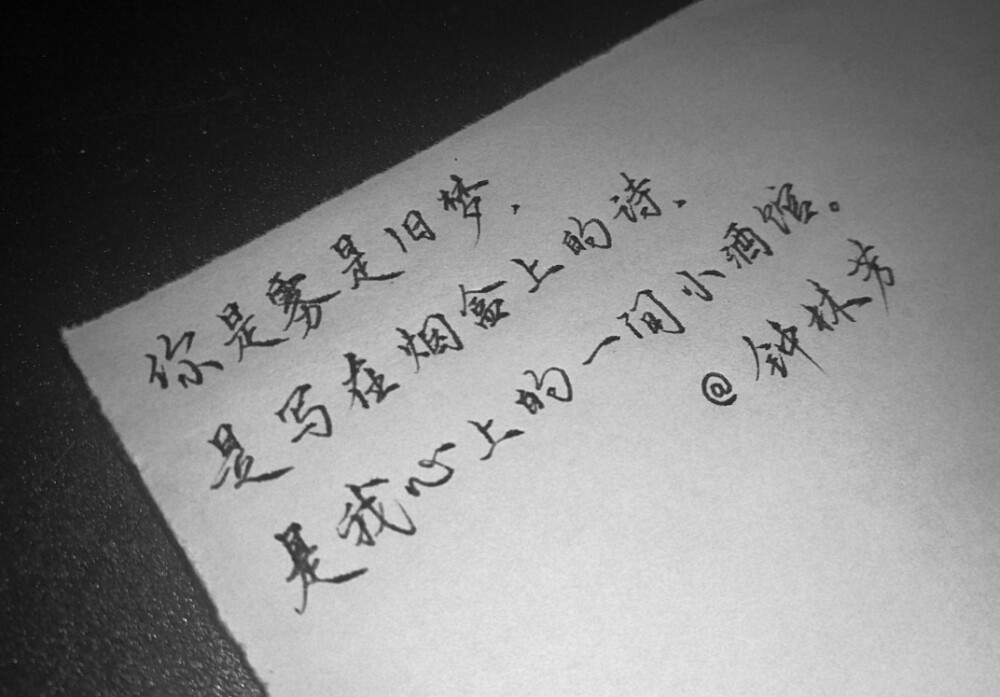 你是雾是旧梦，
是写在烟盒上的诗，
是我心上的一间小酒馆。
@钟林芳